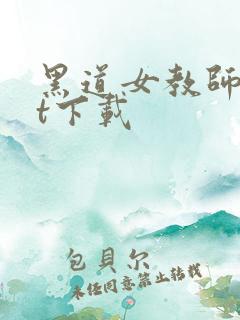 黑道女教師
t下載
包貝尔
未经同意禁止转载